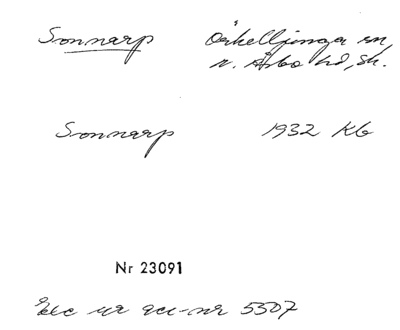 Sonnarp Örkelljunga sn,
n. Åsbo hd, Sk.
Sonnarp 1932 KG
Nr 23091
Exc ur acc-nr 5507